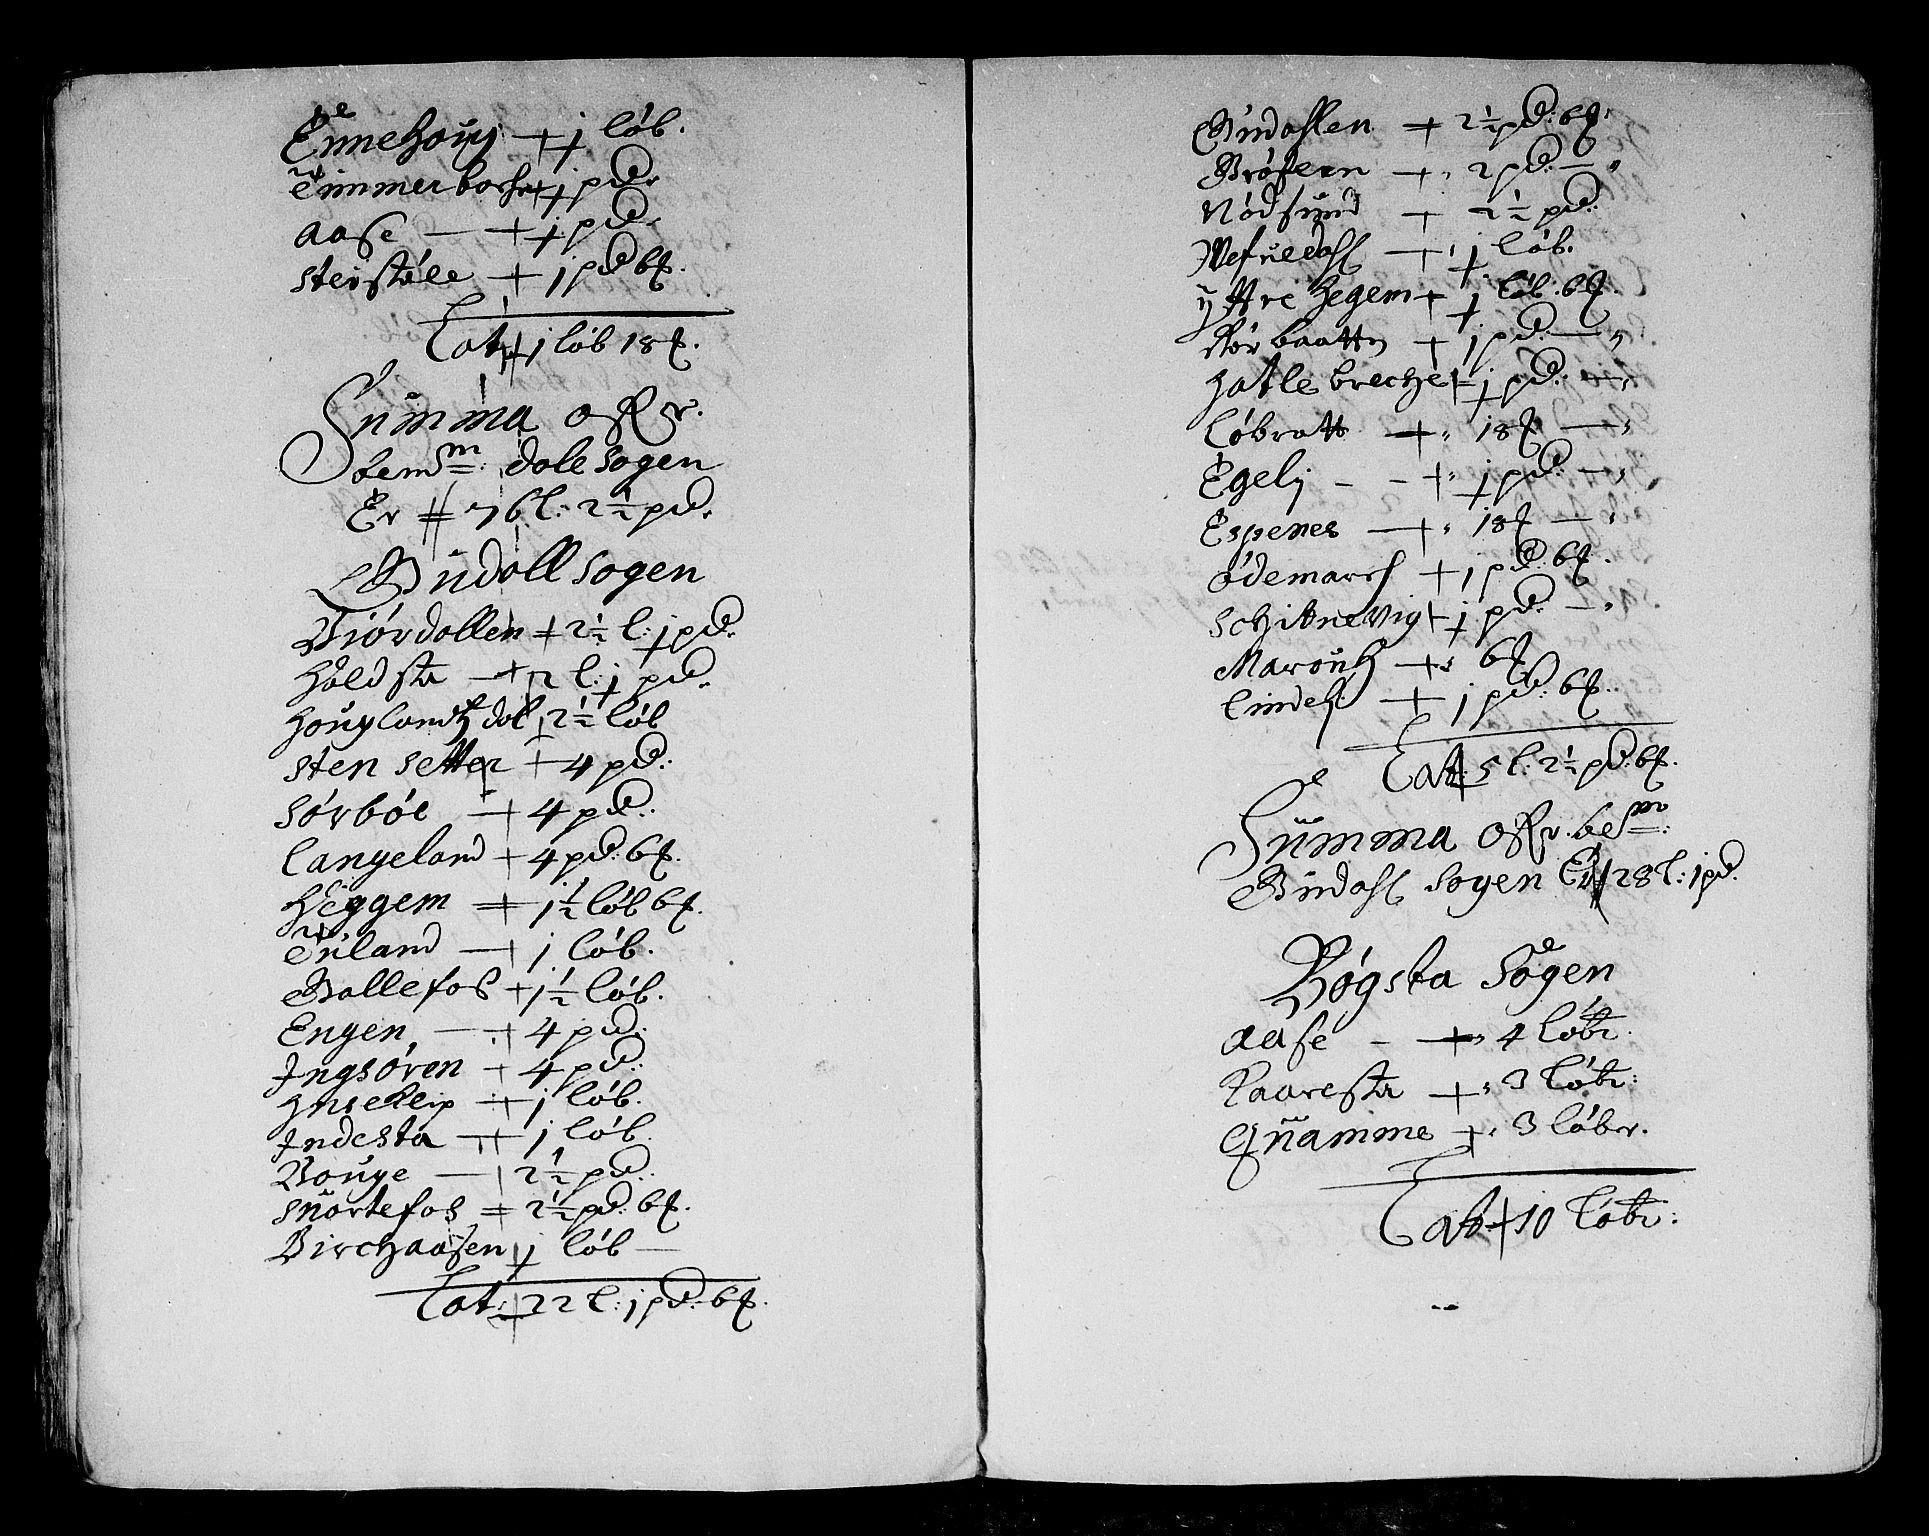 Ennehoug + j løb.
Timmerbache + j pd.
Aase — + j pd.
Steistøle + j pd 6 ℔.
Lat + j løb 18 ℔.
Summa offr.
bemdm: dale sogen
Er # 76 l: 2½ pd.
Gudall sogen
Biørdallen + 2½ l: j pd.
Holdsta — + 2 l: j pd.
Houglandz dal + 2½ løb
Sten Setter + 4 pd:
Sørbøe — + 4 pd:
Langeland + 4 pd: 6 ℔.
Heggem + j½ løb 6 ℔.
Tuland — + j løb.
Gallefos + j½ løb.
Engen, — + 4 pd:
Ingsøren + 4 pd:
+ j løb.
Indesta — + j løb.
Bouge — + 2½ pd:
Suortefos = 2½ pd: 6 ℔.
Birchaasen + j løb —
Lat: + 22 l: j pd: 6 ℔.
Gudahlen + 2½ pd: 6 ℔.
Brøstern — + 2 pd: —
Nødsund + 2½ pd:
— + j løb.
Yttre Hegem + j løb: 6 ℔.
Kørbaatn + j pd: —
Hatlebreche + j pd: —
Løbratt + 18 ℔ —
Egelj - - + j pd: —
Espenes — + 18 ℔ —
Ødemarch + j pd: 6 ℔.
Schitnevig + j pd: —
Marouh — + 6 ℔
Lindelj — + j pd: 6 ℔.
Lat: 5 l: 2½ pd: 6 ℔.
Summa offr. bedm:
Gudahl sogen Er # 28 l: j pd.
Bøgsta Sogen
Aase - — + 4 løbr
Kaaresta + 3 løbr:
Quamme + 3 løbr.
Lat + 10 løbr: